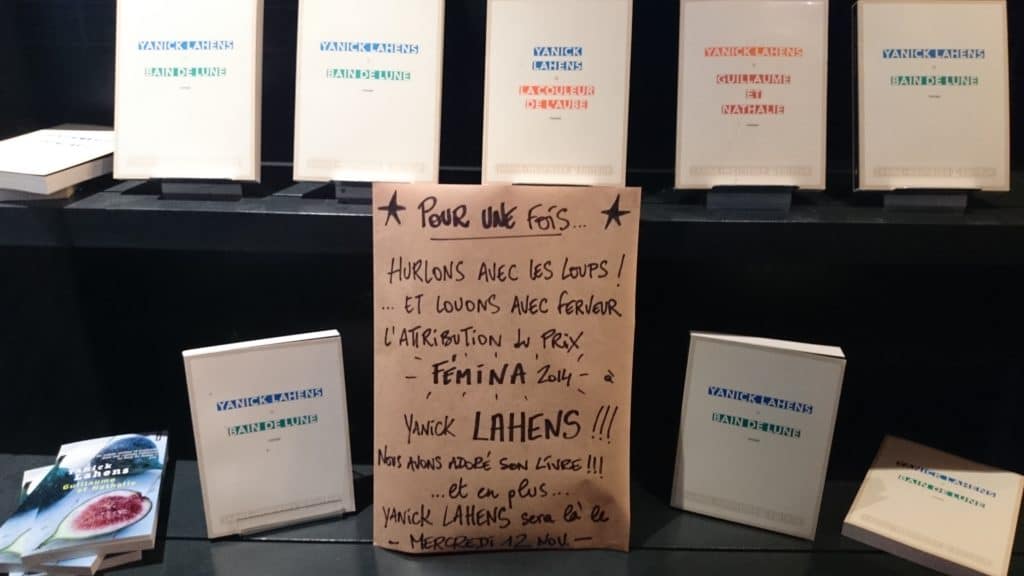 YANICK LAHENS
BAIN DE LUNE
roman
YANICK LAHENS
BAIN DE LUNE
roman
YANICK
LAHENS
LA COULEUR
DE L'AUBE
roman
YANICK LAHENS
GUILLAUME
ET
NATHALIE
roman
YANICK LAHENS
BAIN DE LUNE
roman
POUR UNE FOIS...
HURLONS AVEC LES LOUPS !
... ET LOUONS AVEC FERVEUR
L'ATTRIBUTION du PRIX
- FÉMINA 2014 - à
YANICK LAHENS !!!
NOUS AVONS ADORÉ SON LIVRE !!!
...et en plus...
YANICK LAHENS sera là le
- MERCREDI 12 NOV. -
YANICK LAHENS
BAIN DE LUNE
roman
YANICK LAHENS
BAIN DE LUNE
roman
Yanick
Lahens
Guillaume
et Nathalie
YANICK LAHENS
BAIN DE LUNE